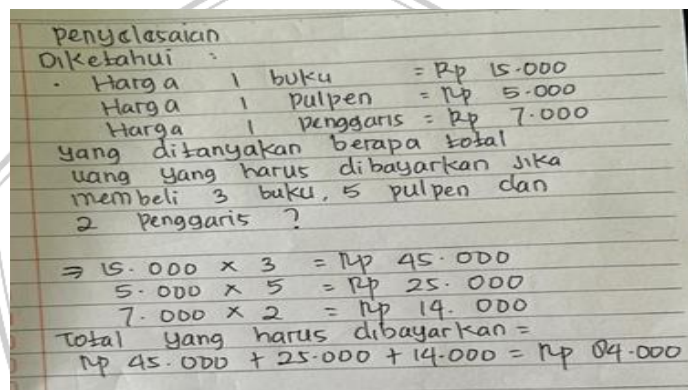 Penyelesaian
Diketahui :
· Harga 1 buku = Rp 15.000
Harga 1 pulpen = Rp 5.000
Harga 1 penggaris = Rp 7.000
yang ditanyakan berapa total
uang yang harus dibayarkan jika
membeli 3 buku, 5 pulpen dan
2 Penggaris ?
⇒ 15.000 × 3 = Rp 45.000
5.000 × 5 = Rp 25.000
7.000 × 2 = Rp 14.000
Total yang harus dibayarkan =
Rp 45.000 + 25.000 + 14.000 = Rp 84.000